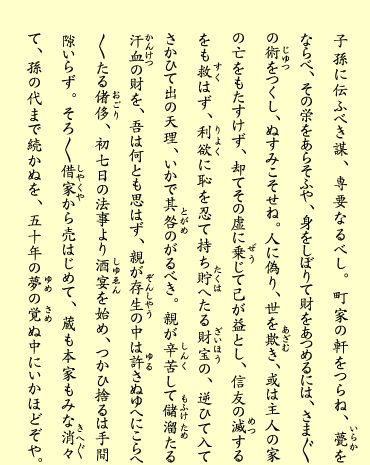 子孫に伝ふべき謀、専要なるべし。　町家の軒をつらね、甍を
ならべ、その栄をあらそふや、身をしぼりて財をあつめるには、さま〴〵
の術をつくし、ぬすみこそせね。人に偽り、世を欺き、或は主人の家
の亡をもたすけず、却てその虚に乗じて己が益とし、信友の滅する
をも救はず、利欲に恥を忍て持ち貯へたる財宝の、逆ひて入て
さかひて出の天理、いかで其咎のがるべき。親が辛苦して儲溜たる
汗血の財を、吾は何とも思はず、親が存生の中は許さぬゆへにこらへ
〳〵たる偖侈、初七日の法事より酒宴を始め、つかひ捨るは手間
隙いらず。そろ〳〵借家から売はじめて、蔵も本家もみな消々
て、孫の代まで続かぬを、五十年の夢の覚ぬ中にいかほどぞや。